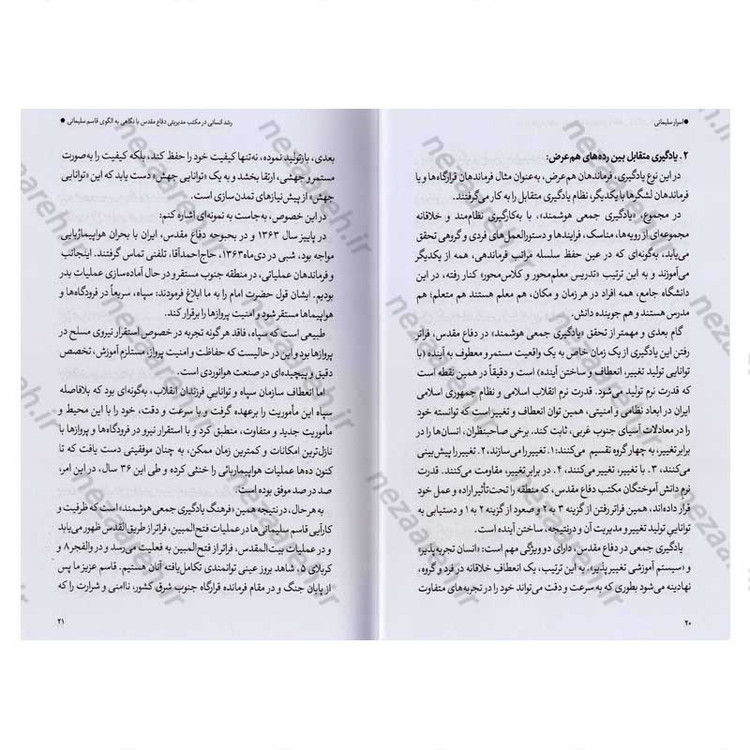 ● اسرار سلیمانی
۲. یادگیری متقابل بین رده‌های هم‌عرض:
در این نوع یادگیری، فرماندهان هم‌عرض، به‌عنوان مثال فرماندهان قرارگاه‌ها و یا
فرماندهان لشگرها با یکدیگر، نظام یادگیری متقابل را به کار می‌گرفتند.
در مجموع، «یادگیری جمعی هوشمند»، با به‌کارگیری نظام‌مند و خلاقانه
مجموعه‌ای از رویه‌ها، مناسک، فرایندها و دستورالعمل‌های فردی و گروهی تحقق
می‌یابد، به‌گونه‌ای که در عین حفظ سلسله مراتب فرماندهی، همه از یکدیگر
می‌آموزند و به این ترتیب «تدریس معلم‌محور و کلاس‌محور» کنار رفته، در این
دانشگاه جامع، همه افراد در هر زمان و مکان، هم معلم هستند هم متعلم؛ هم
مدرس هستند و هم جوینده دانش.
گام بعدی و مهمتر از تحقق «یادگیری جمعی هوشمند» در دفاع مقدس، فراتر
رفتن این یادگیری از یک زمان خاص به یک واقعیت مستمر و معطوف به آینده (با
توانایی تولید تغییر، انعطاف و ساختن آینده) است و دقیقاً در همین نقطه است
که قدرت نرم تولید می‌شود. قدرت نرم انقلاب اسلامی و نظام جمهوری اسلامی
ایران در ابعاد نظامی و امنیتی، همین توان انعطاف و تغییر است که توانسته خود
را در معادلات آسیای جنوب غربی، ثابت کند. برخی صاحبنظران، انسان‌ها را در
برابر تغییر، به چهار گروه تقسیم می‌کنند: ۱. تغییر را می‌سازند، ۲. تغییر را پیش‌بینی
می‌کنند، ۳. با تغییر، تغییر می‌کنند، ۴. در برابر تغییر، مقاومت می‌کنند. قدرت
نرم دانش آموختگان مکتب دفاع مقدس، که منطقه را تحت‌تأثیر اراده و عمل خود
قرار داده‌اند، همین فراتر رفتن از گزینه ۳ به ۲ و صعود از گزینه ۲ به ۱ و دستیابی به
توانایی تولید تغییر و مدیریت آن و درنتیجه، ساختن آینده است.
یادگیری جمعی در دفاع مقدس، دارای دو ویژگی مهم است: «انسان تجربه‌پذیر»
و «سیستم آموزشی تغییرپذیر»، به این ترتیب، یک انعطاف خلاقانه در فرد و گروه،
نهادینه می‌شود بطوری که به سرعت و دقت می‌تواند خود را در تجربه‌های متفاوت
۲۰
رشد انسانی در مکتب مدیریتی دفاع مقدس با نگاهی به الگوی قاسم سلیمانی ●
بعدی، بازتولید نموده، نه‌تنها کیفیت خود را حفظ کند، بلکه کیفیت را به‌صورت
مستمر و جهشی، ارتقا بخشد و به یک «توانایی جهش» دست یابد که این «توانایی
جهش» از پیش‌نیازهای تمدن‌سازی است.
در این خصوص، به‌جاست به نمونه‌ای اشاره کنم:
در پاییز سال ۱۳۶۳ و در بحبوحه دفاع مقدس، ایران با بحران هواپیماربایی
مواجه بود، شبی در دی‌ماه ۱۳۶۳، حاج‌احمدآقا، تلفنی تماس گرفتند. اینجانب
و فرماندهان عملیاتی، در منطقه جنوب مستقر و در حال آماده‌سازی عملیات بدر
بودیم. ایشان قول حضرت امام را به ما ابلاغ فرمودند: سپاه، سریعاً در فرودگاه‌ها و
هواپیماها مستقر شود و امنیت پروازها را برقرار کند.
طبیعی است که سپاه، فاقد هر گونه تجربه در خصوص استقرار نیروی مسلح در
پروازها بود و این در حالیست که حفاظت و امنیت پرواز، مستلزم آموزش، تخصص
دقیق و پیچیده‌ای در صنعت هوانوردی است.
اما انعطاف سازمان سپاه و توانایی فرزندان انقلاب، به‌گونه‌ای بود که بلافاصله
سپاه این مأموریت را برعهده گرفت و با سرعت و دقت، خود را با این محیط و
مأموریت جدید و متفاوت، منطبق کرد و با استقرار نیرو در فرودگاه‌ها و پروازها با
نازل‌ترین امکانات و کمترین زمان ممکن، به چنان موفقیتی دست یافت که تا
کنون ده‌ها عملیات هواپیماربائی را خنثی کرده و طی این ۳۶ سال، در این امر،
صد در صد موفق بوده است.
به هر حال، در نتیجه همین «فرهنگ یادگیری جمعی هوشمند» است که ظرفیت و
کارآیی قاسم سلیمانی‌ها در عملیات فتح‌المبین، فراتر از طریق‌القدس ظهور می‌یابد
و در عملیات بیت‌المقدس، فراتر از فتح‌المبین به فعلیت می‌رسد و در والفجر ۸ و
کربلای ۵، شاهد بروز عینی توانمندی تکامل‌یافته آنان هستیم. قاسم عزیز ما پس
از پایان جنگ و در مقام فرمانده قرارگاه جنوب شرق کشور، ناامنی و شرارت را که
۲۱
nezaareh.ir